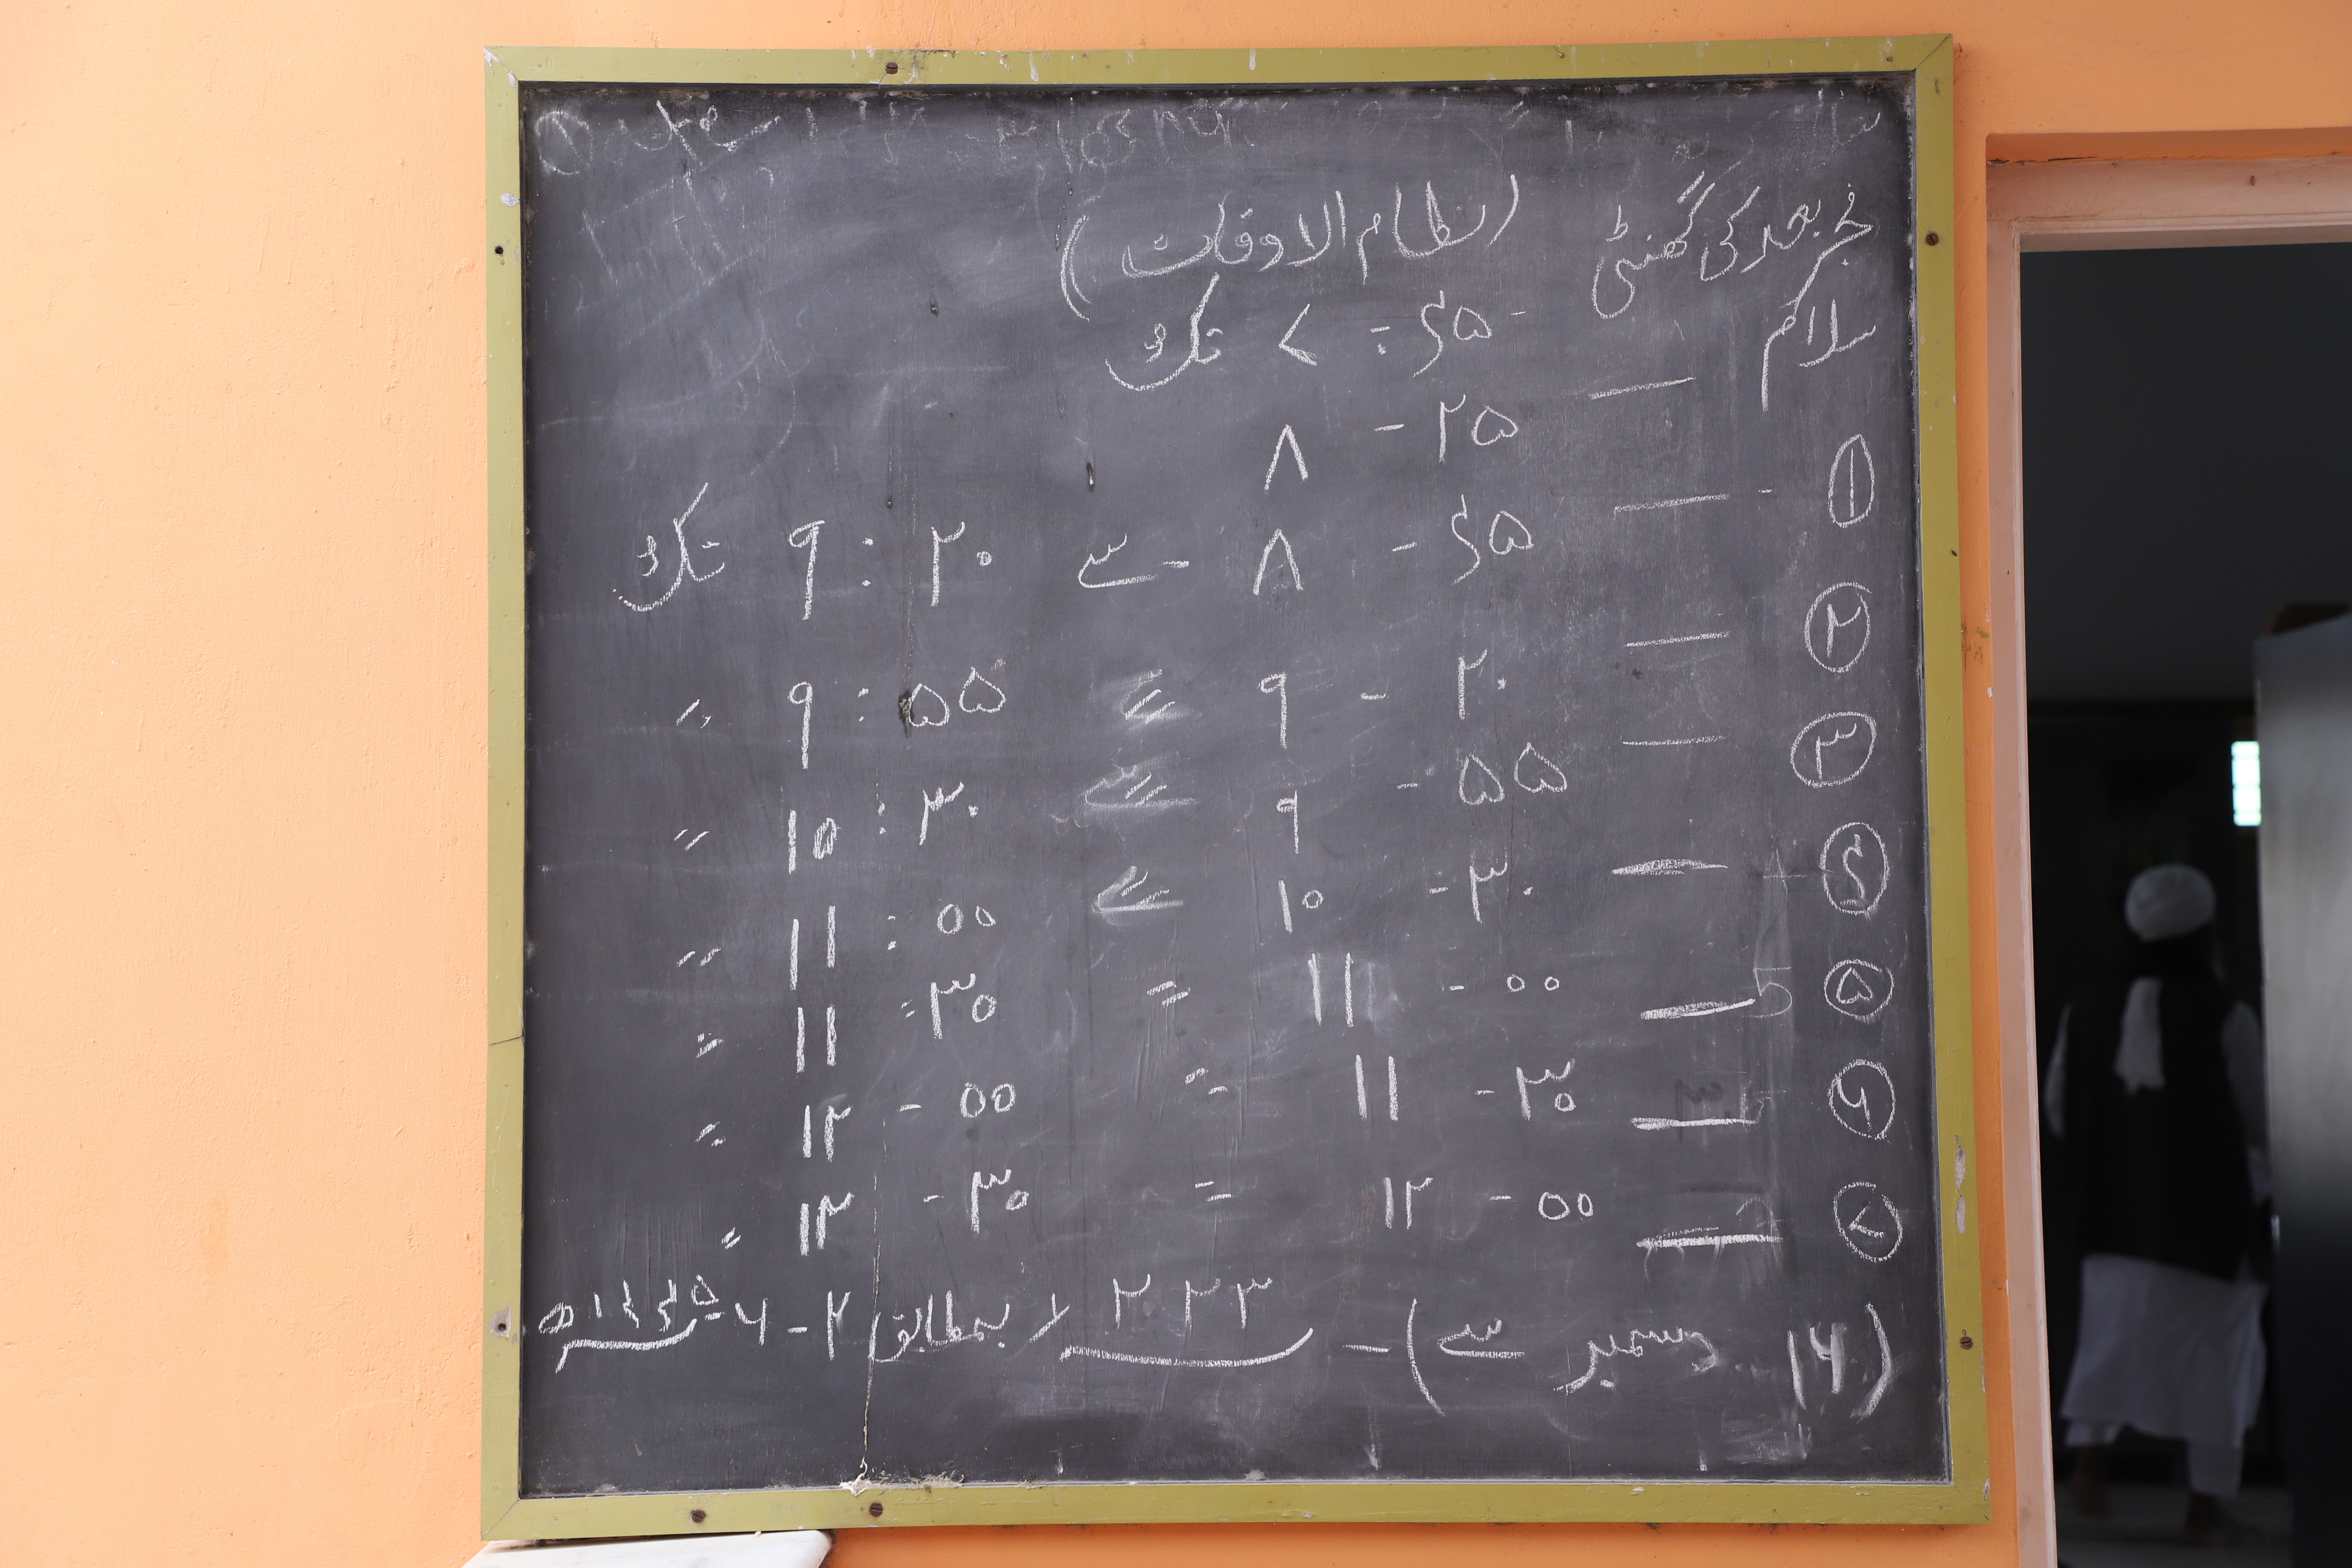 (نظام الاوقات)
فجر بعد کی گھنٹی ۴۵ : ۷ تک
سلام — ۲۵ - ۸
۱ — ۴۵ - ۸ سے ۲۰ : ۹ تک
۲ — ۲۰ - ۹ سے ۵۵ : ۹ 〃
۳ — ۵۵ - ۹ سے ۳۰ : ۱۰ 〃
۴ — ۳۰ - ۱۰ سے ۰۰ : ۱۱ 〃
۵ — ۰۰ - ۱۱ 〃 ۳۰ : ۱۱ 〃
۶ — ۳۰ - ۱۱ 〃 ۰۰ - ۱۲ 〃
۷ — ۰۰ - ۱۲ 〃 ۳۰ - ۱۲ 〃
(۱۶ دسمبر سے) - ۲۰۲۳ء بمطابق ۲ - ۶ - ۱۴۴۵ھ